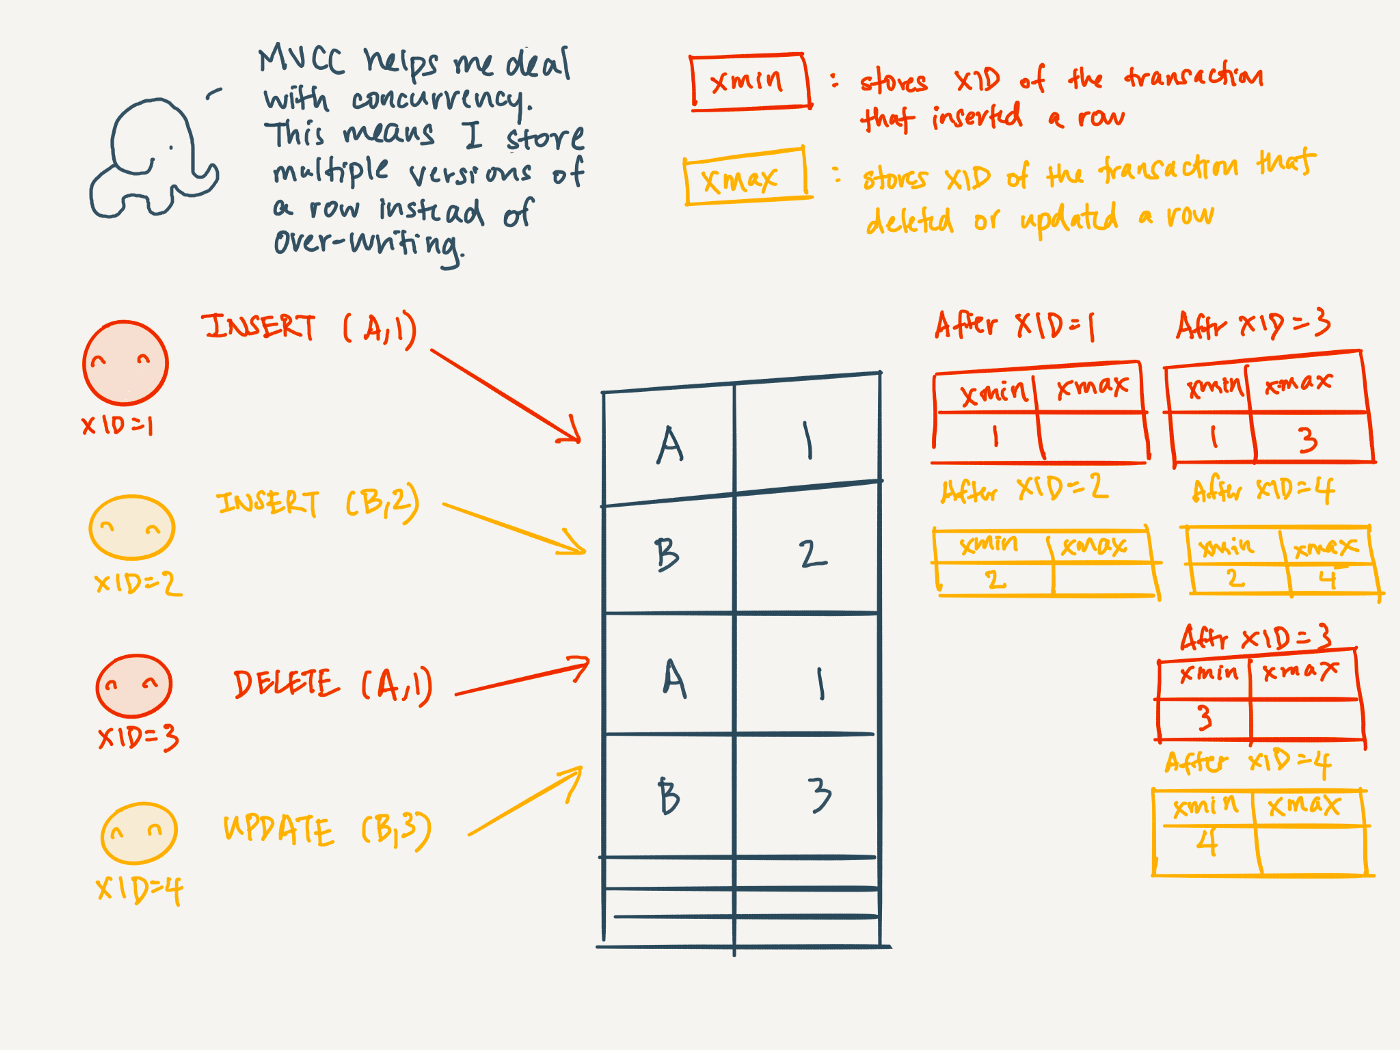 MVCC helps me deal
with concurrency.
This means I store
multiple versions of
a row instead of
over-writing.
xmin : stores XID of the transaction
that inserted a row
xmax : stores XID of the transaction that
deleted or updated a row
INSERT (A,1)
XID=1
INSERT (B,2)
XID=2
DELETE (A,1)
XID=3
UPDATE (B,3)
XID=4
A 1
B 2
A 1
B 3
After XID=1
xmin xmax
1
After XID=2
xmin xmax
2
Aftr XID=3
xmin xmax
1 3
After XID=4
xmin xmax
2 4
Aftr XID=3
xmin xmax
3
After XID=4
xmin xmax
4